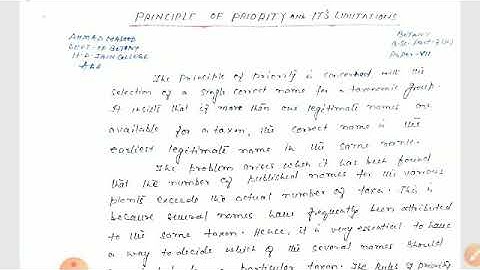 PRINCIPLE OF PRIORITY AND ITS LIMITATIONS
AHMAD MASOOD
DEPT. OF BOTANY
H.D. JAIN COLLEGE
ARA
BOTANY
B.Sc. Part-
Paper-VII
The principle of priority is concerned with the
selection of a single correct name for a taxonomic group.
It insists that if more than one legitimate names are
available for a taxon, the correct name is the
earliest legitimate name in the same rank.
The problem arises when it has been found
that the number of published names for the various
plants exceeds the actual number of taxa. This is
because several names have frequently been attributed
to the same taxon. Hence, it is very essential to have
a way to decide which of the several names should
a particular taxon. The Rules of priority